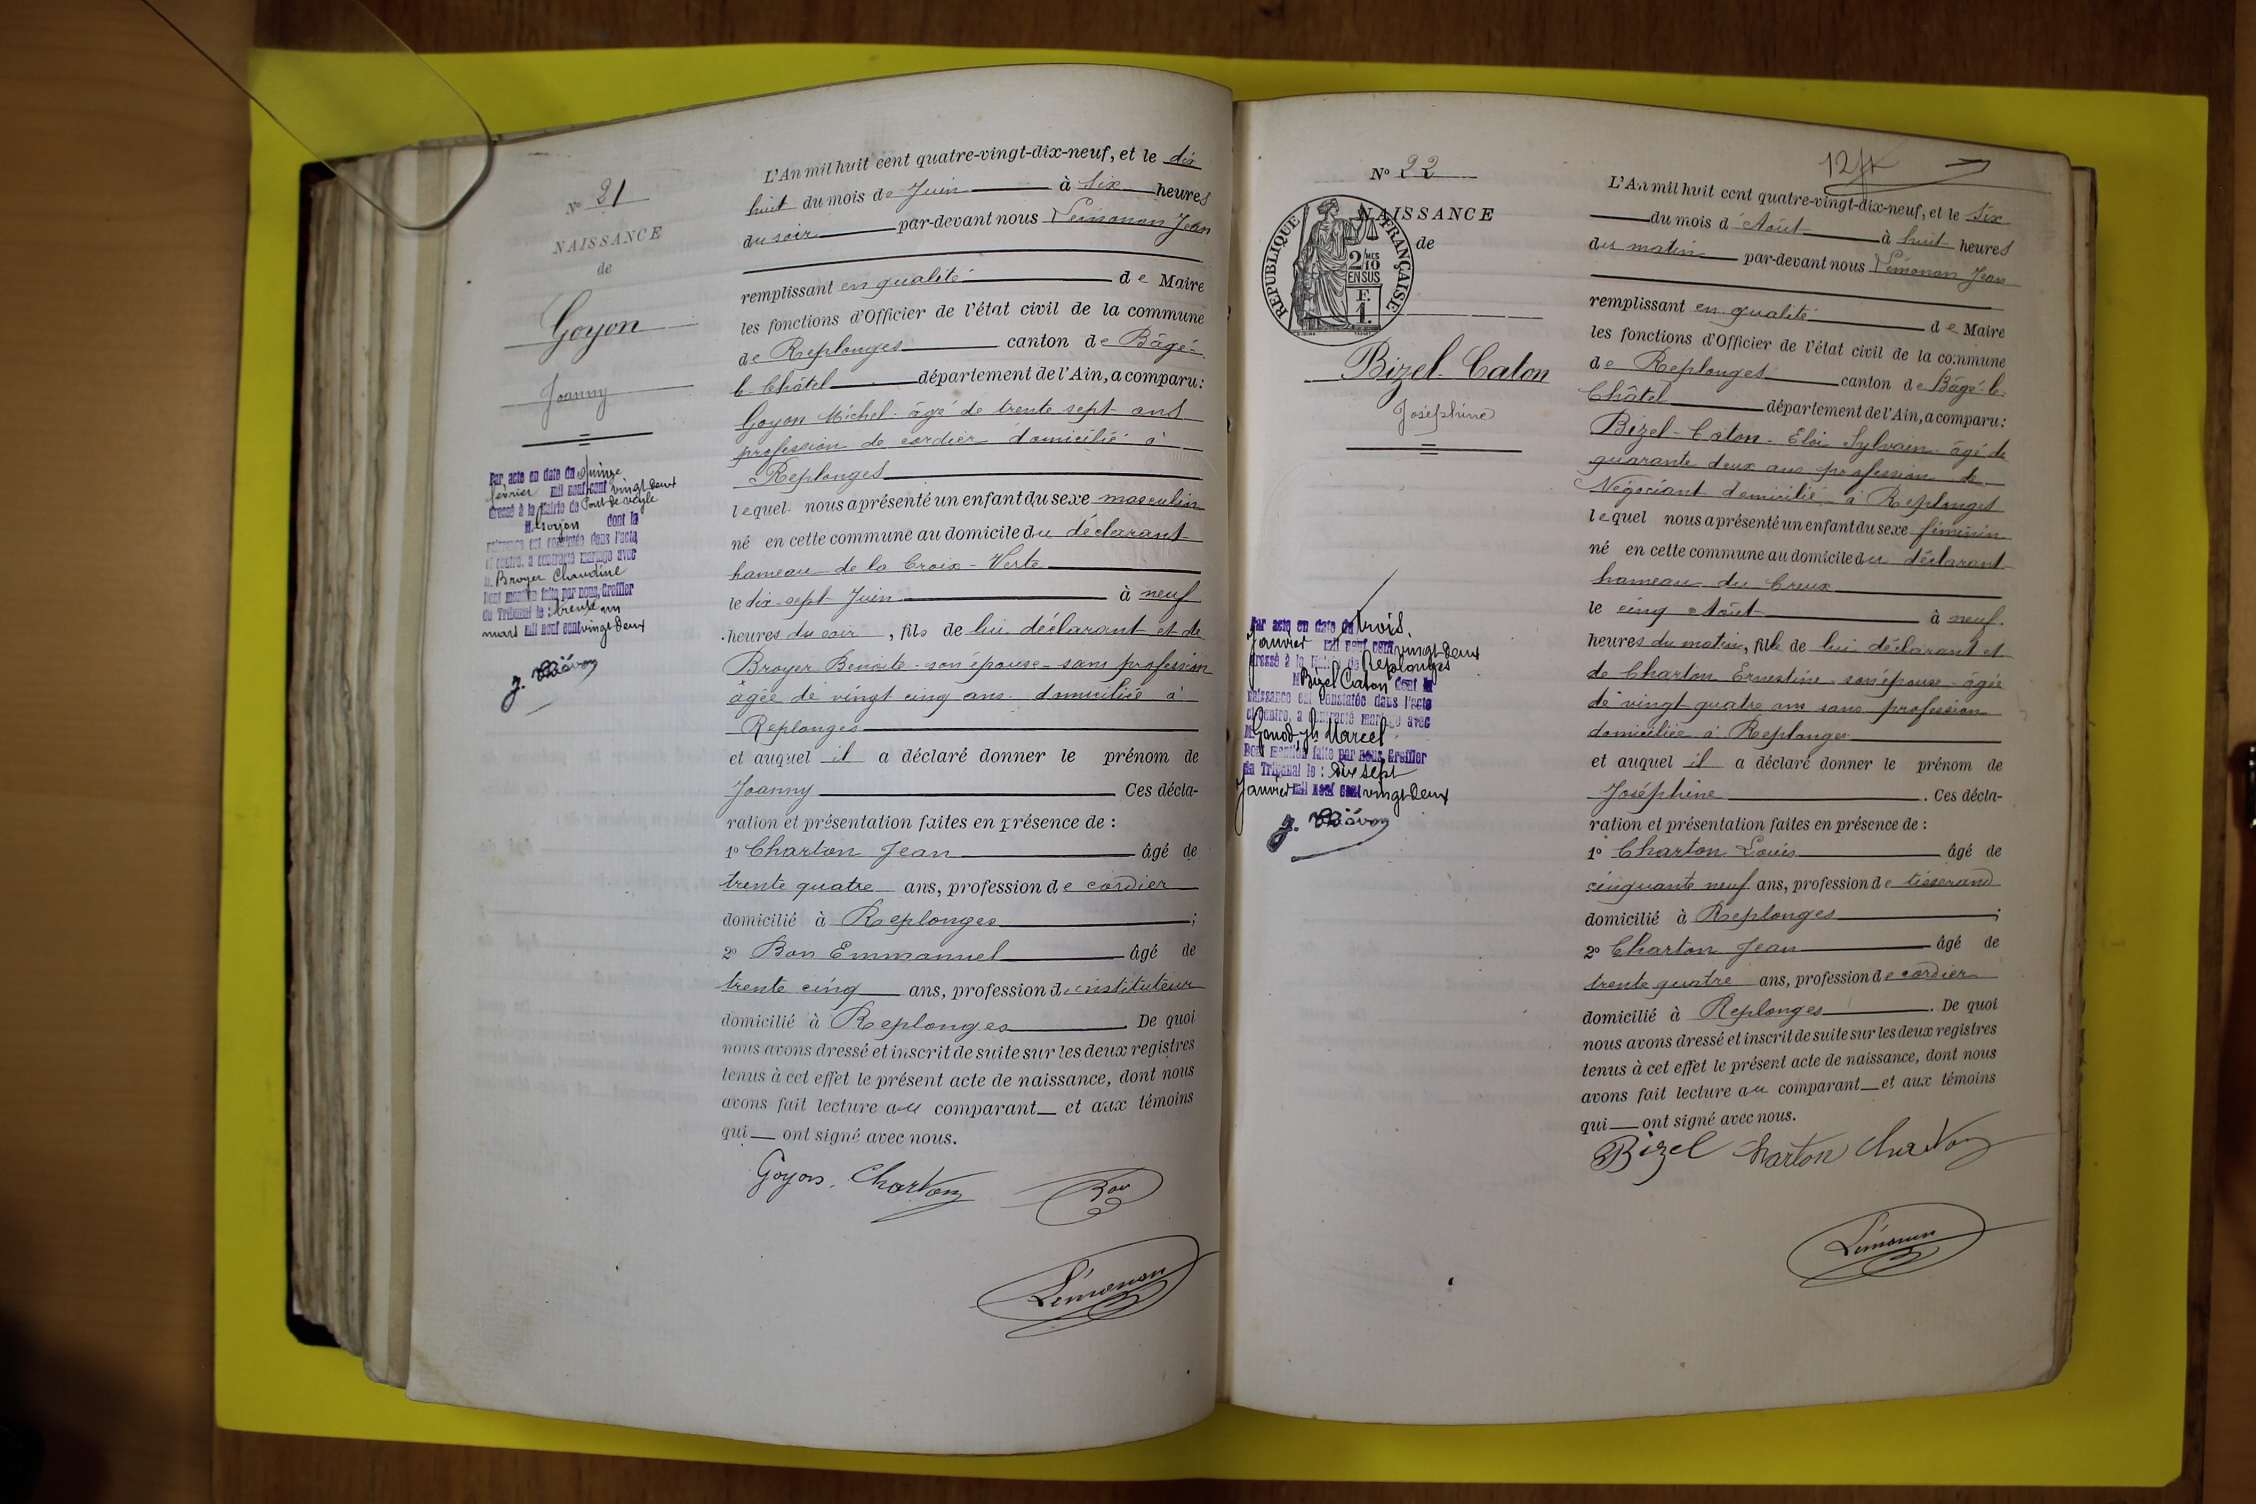 N° 21
NAISSANCE
de
Goyon
Joanny
Par acte en date du quinze
février mil neuf cent vingt deux
dressé à la Mairie de Pont de Veyle
M. Goyon dont la
naissance est constatée dans l'acte
ci contre, a contracté mariage avec
M. Broyer Claudine
Dont mention faite par nous, Greffier
du Tribunal le : trente un
mars mil neuf cent vingt deux
L'An mil huit cent quatre-vingt-dix-neuf, et le dix
huit du mois de Juin à six heures
du soir par-devant nous Lémonon Jean
remplissant en qualité de Maire
les fonctions d'Officier de l'état civil de la commune
de Replonges canton de Bâgé-
le Châtel département de l'Ain, a comparu:
Goyon Michel âgé de trente sept ans
profession de cordier domicilié à
Replonges
lequel nous a présenté un enfant du sexe masculin
né en cette commune au domicile du déclarant
hameau de la Croix-Verte
le dix-sept Juin à neuf
heures du soir, fils de lui déclarant et de
Broyer Benoite son épouse sans profession
âgée de vingt cinq ans domiciliée à
Replonges
et auquel il a déclaré donner le prénom de
Joanny Ces décla-
ration et présentation faites en présence de :
1° Charton Jean âgé de
trente quatre ans, profession de cordier
domicilié à Replonges ;
2° Bon Emmanuel âgé de
trente cinq ans, profession d'instituteur
domicilié à Replonges. De quoi
nous avons dressé et inscrit de suite sur les deux registres
tenus à cet effet le présent acte de naissance, dont nous
avons fait lecture au comparant et aux témoins
qui ont signé avec nous.
Goyon. Charton Bon
Lémonon
N° 22
NAISSANCE
de
REPUBLIQUE FRANÇAISE
2/10 MES
EN SUS
F.
1.
Bizel-Caton
Joséphine
Par acte en date du trois
Janvier mil neuf cent vingt deux
dressé à la Mairie de Replonges
M Bizel Caton dont la
naissance est constatée dans l'acte
ci contre, a contracté mariage avec
M. Gonod Jh Marcel
Dont mention faite par nous, Greffier
du Tribunal le : dix sept
Janvier mil neuf cent vingt deux
L'An mil huit cent quatre-vingt-dix-neuf, et le six
du mois d'Août à huit heures
du matin par-devant nous Lémonon Jean
remplissant en qualité de Maire
les fonctions d'Officier de l'état civil de la commune
de Replonges canton de Bâgé-le-
Châtel département de l'Ain, a comparu:
Bizel-Caton Eloi Sylvain âgé de
quarante deux ans profession de
Négociant domicilié à Replonges
lequel nous a présenté un enfant du sexe féminin
né en cette commune au domicile du déclarant
hameau du Creux
le cinq Août à neuf
heures du matin, fille de lui déclarant et
de Charton Ernestine son épouse âgée
de vingt quatre ans sans profession
domiciliée à Replonges
et auquel il a déclaré donner le prénom de
Joséphine. Ces décla-
ration et présentation faites en présence de :
1° Charton Louis âgé de
cinquante neuf ans, profession de tisserand
domicilié à Replonges ;
2° Charton Jean âgé de
trente quatre ans, profession de cordier
domicilié à Replonges. De quoi
nous avons dressé et inscrit de suite sur les deux registres
tenus à cet effet le présent acte de naissance, dont nous
avons fait lecture au comparant et aux témoins
qui ont signé avec nous.
Bizel Charton Charton
Lémonon